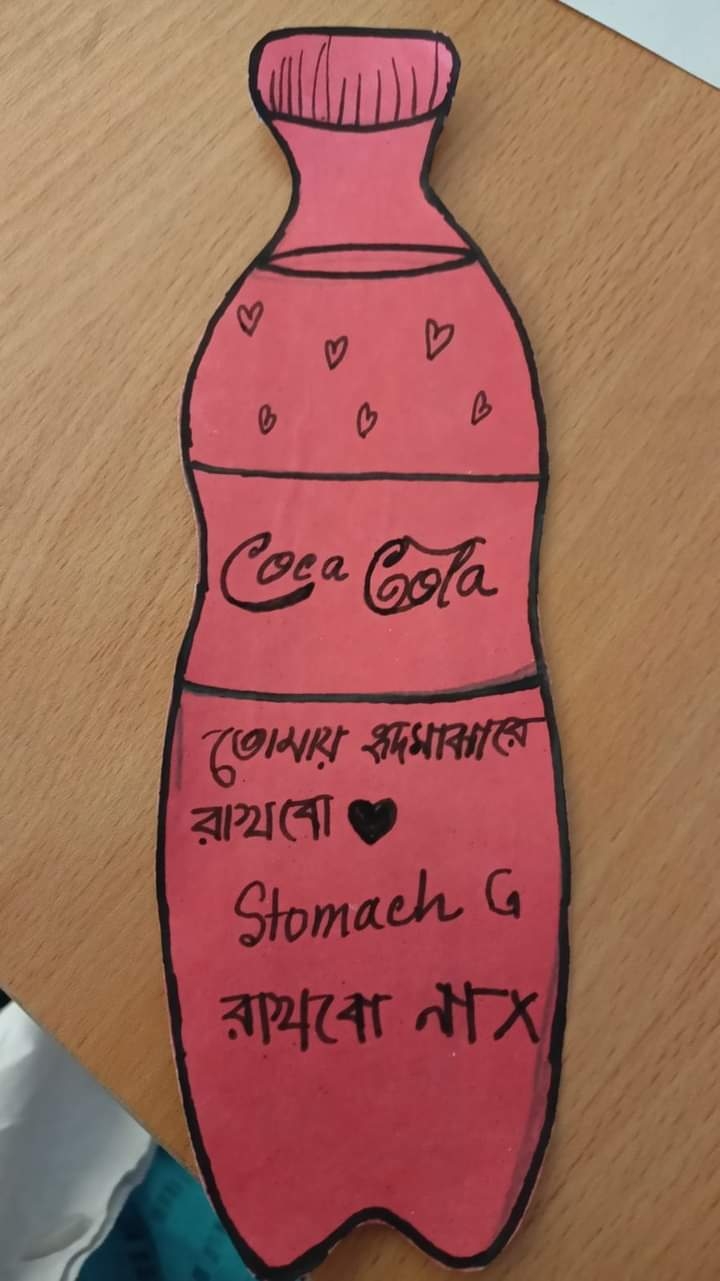 Coca Cola
তোমায় হৃদমাঝারে
রাখবো
Stomach এ
রাখবো না X